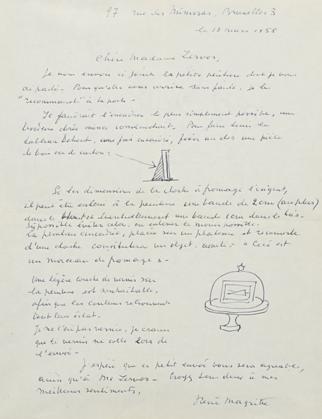 97 rue des Mimosas, Bruxelles 3
le 18 mars 1958
Chère Madame Zervos,
Je vous envoie ci-joint la petite peinture dont je vous
ai parlé. Pour qu'elle vous arrive sans faute, je la
"recommande" à la poste.
Il faudrait l'encadrer le plus simplement possible, une
bordure dorée mince conviendrait. Pour faire tenir le
tableau debout, une fois encadré, fixer au dos une pièce
de bois ou de carton :
Si les dimensions de la cloche à fromage l'exigent,
il peut être enlevé à la peinture une bande de 2 cm (au plus)
dans le haut et éventuellement une bande 1 cm dans le bas.
Si possible éviter cela, ou enlever le moins possible.
La peinture encadrée, placée sur un plateau et recouverte
d'une cloche constituera un objet intitulé : "Ceci est
un morceau de fromage".
Une légère couche de vernis sur
la peinture est souhaitable,
afin que les couleurs retrouvent
tout leur éclat.
Je ne l'ai pas vernie, je crains
que le vernis ne colle lors de
l'envoi.
J'espère que ce petit envoi vous sera agréable,
ainsi qu'à Mr Zervos. Croyez tous deux à mes
meilleurs sentiments,
René Magritte